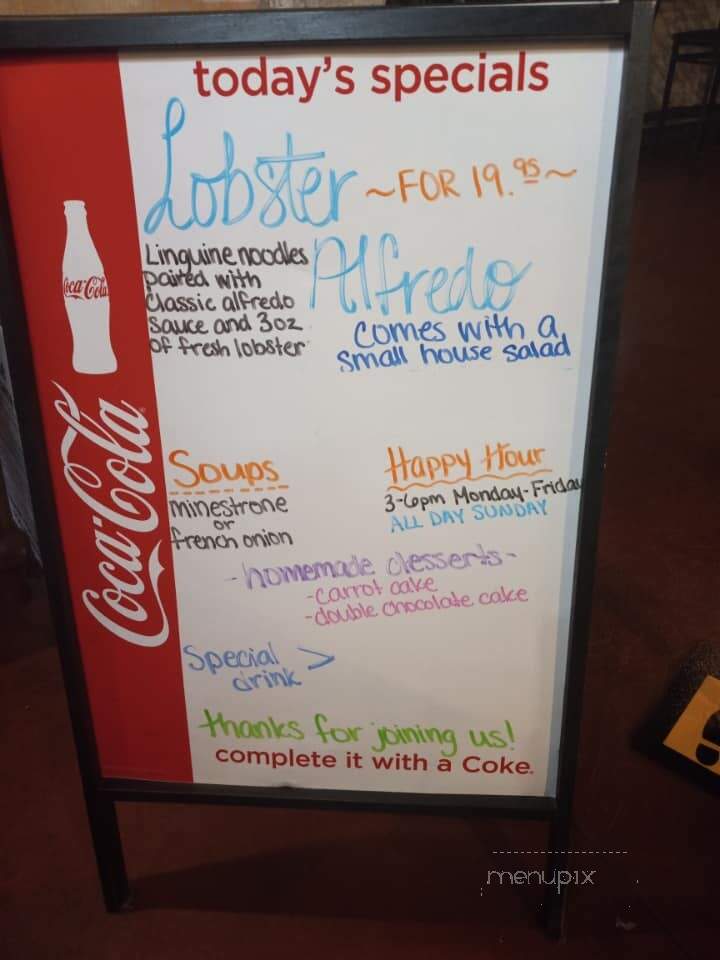 today's specials
Lobster ~FOR 19.95~
Alfredo
Linguine noodles
paired with
classic alfredo
sauce and 3oz
of fresh lobster
comes with a
small house salad
Coca-Cola
Coca-Cola
Soups
minestrone
or
french onion
Happy Hour
3-6pm Monday-Friday
ALL DAY SUNDAY
-homemade desserts-
-carrot cake
-double chocolate cake
Special >
drink
thanks for joining us!
complete it with a Coke.
menupix